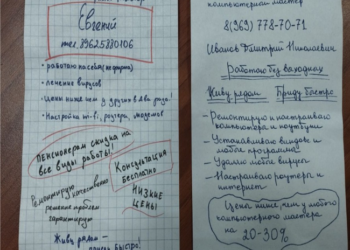 Евгений
тел. 89625880106
• работаю на себя (не фирма)
• лечение вирусов
• цены ниже чем у других в два раза!
• Настройка wi-fi, роутера, модемов
Пенсионерам скидка на
все виды работы!
Консультация
бесплатно
Ремонтирую качественно
решение проблем
гарантирую
Низкие
цены
Живу рядом —
быстро!
компьютерный мастер
8(969) 778-70-71
Иванов Дмитрий Николаевич
Работаю без выходных
Живу рядом Приду быстро
– Ремонтирую и настраиваю
компьютера и ноутбуки
– Устанавливаю виндовс и
любые программы
– Удаляю любые вирусы
– Настраиваю роутеры и
интернет
Цены ниже, чем у любого
компьютерного мастера
на 20-30%